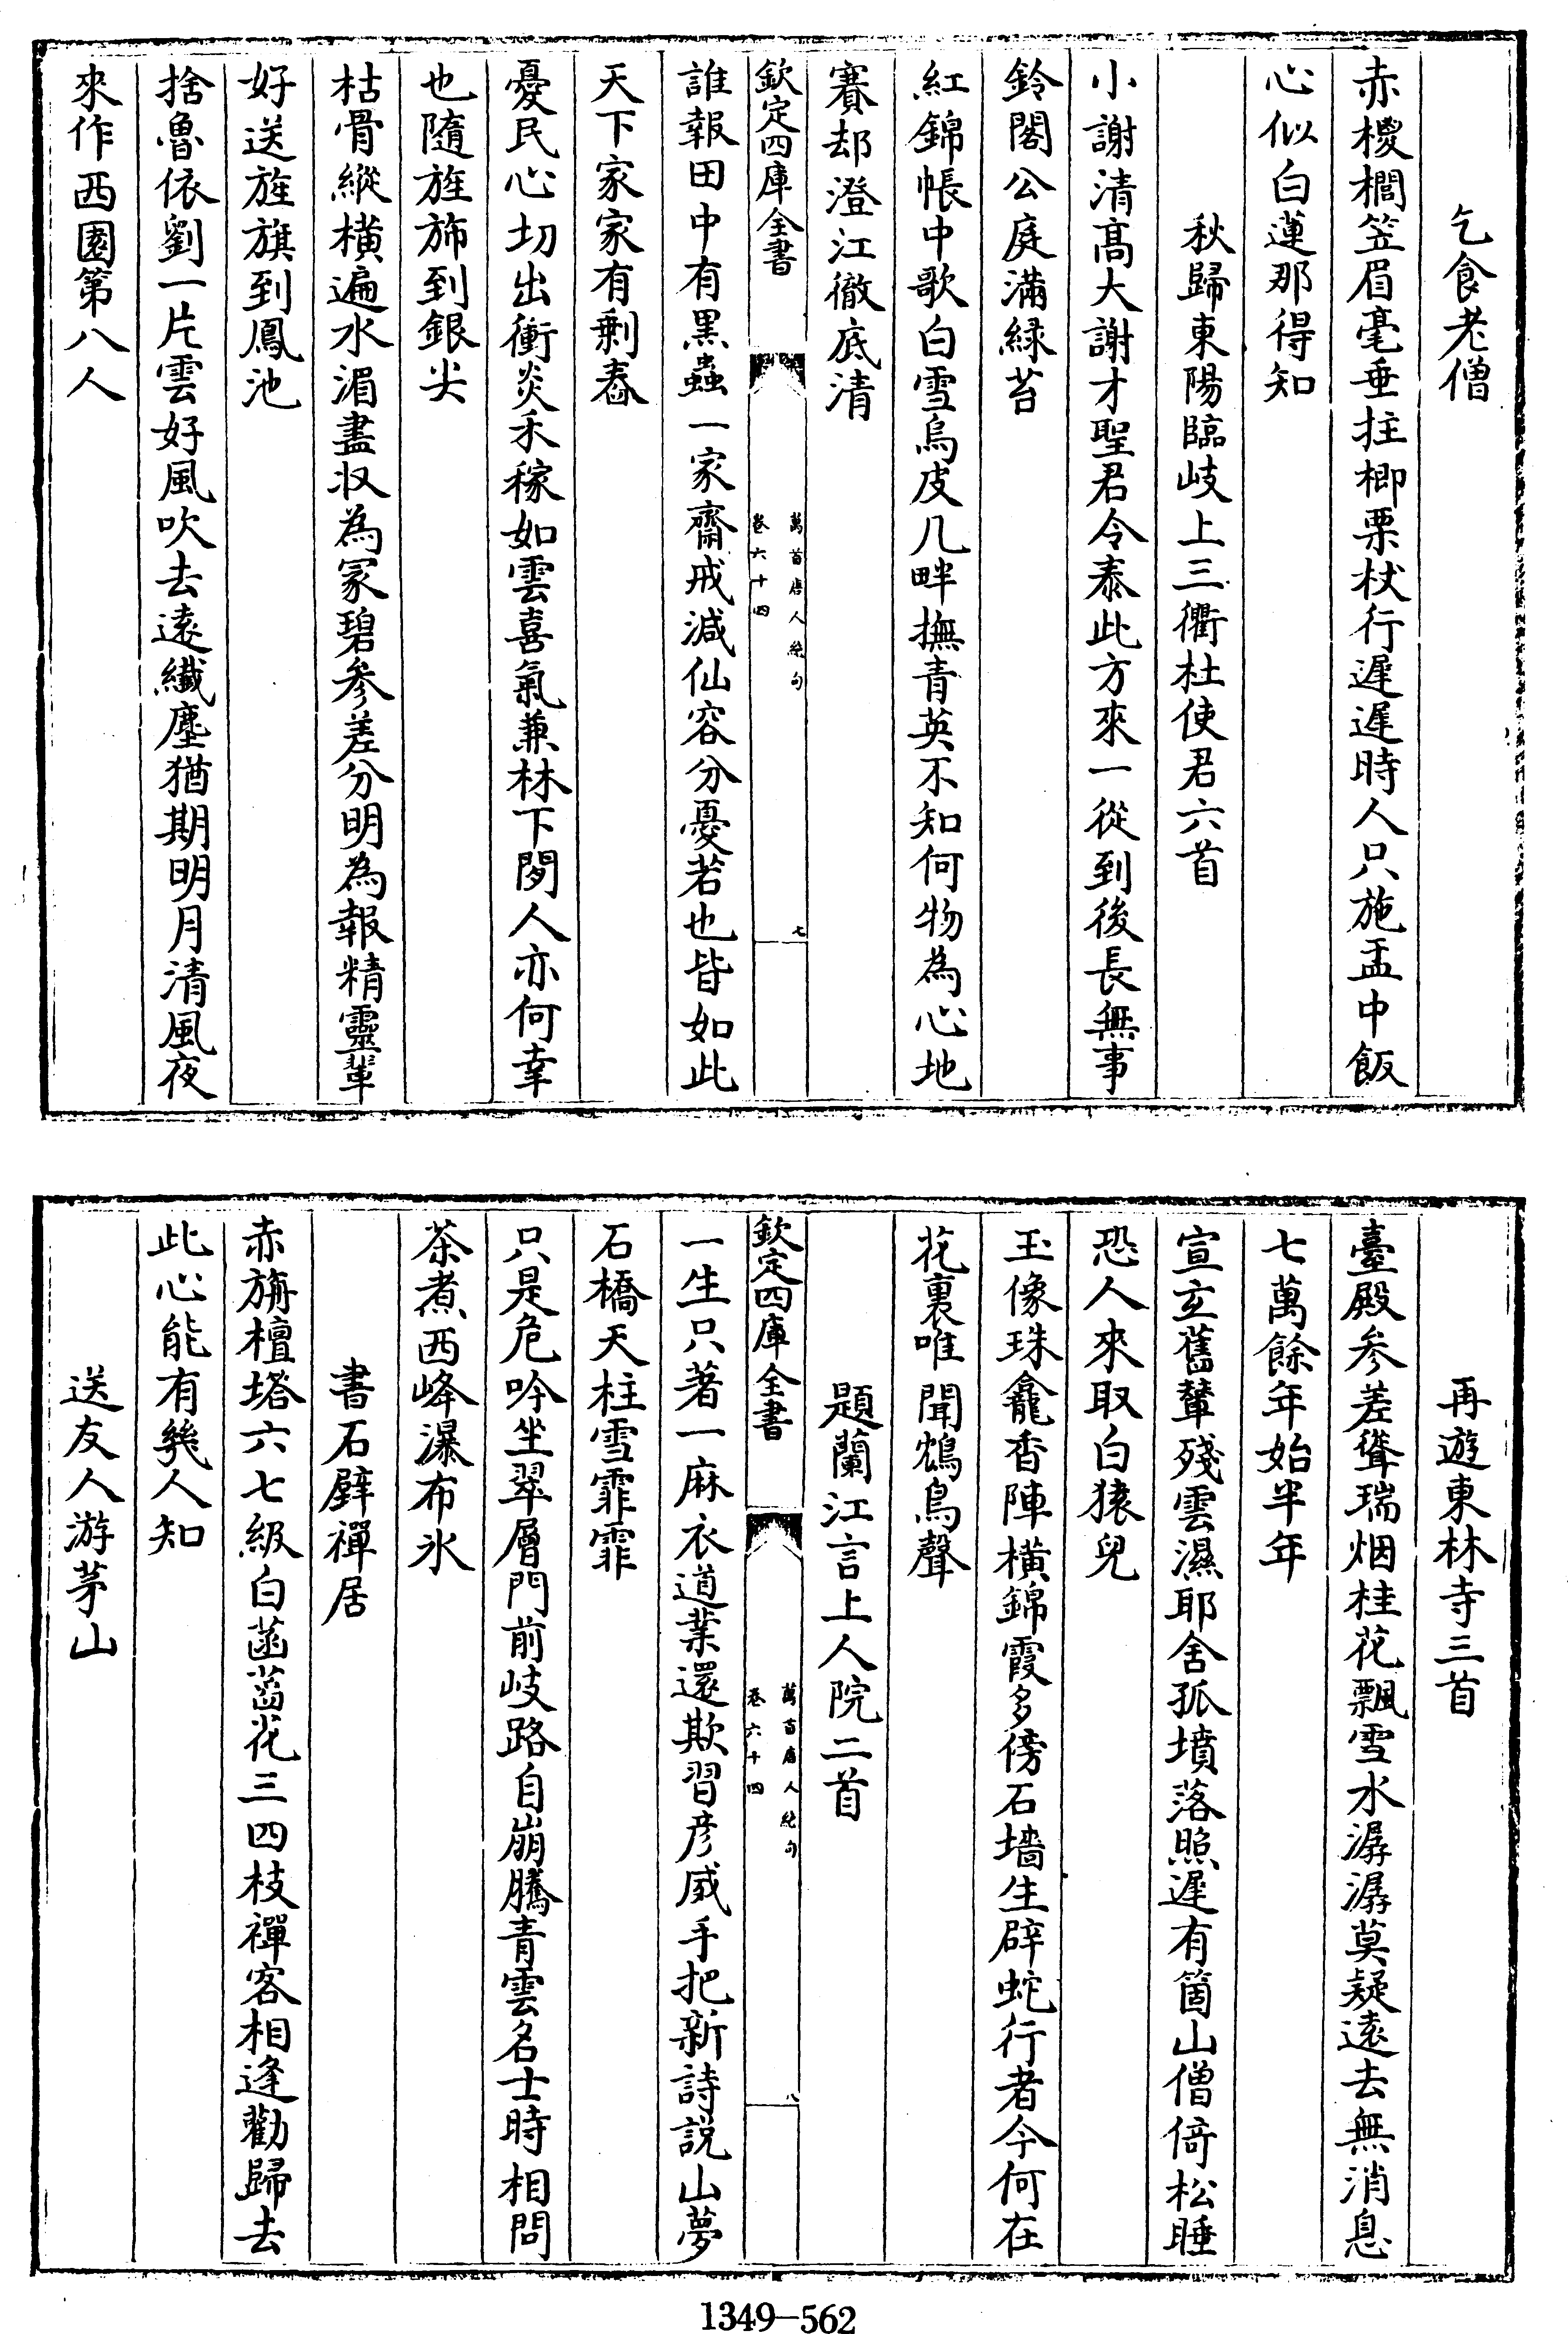 乞食老僧
赤椶櫚笠眉毫垂拄楖栗杖行遲遲時人只施盂中飯
心似白蓮那得知
秋歸東陽臨岐上三衢杜使君六首
小謝清髙大謝才聖君令泰此方來一從到後長無事
鈴閣公庭滿緑苔
紅錦帳中歌白雪烏皮几畔撫青英不知何物為心地
賽却澄江徹底清
欽定四庫全書
萬首唐人絶句
卷六十四
七
誰報田中有黑蟲一家齋戒減仙容分憂若也皆如此
天下家家有剰舂
憂民心切出衝炎禾稼如雲喜氣兼林下閑人亦何幸
也隨旌斾到銀尖
枯骨縱横遍水湄盡収為冢碧參差分明為報精靈輩
好送旌旗到鳳池
捨魯依劉一片雲好風吹去遠纎塵猶期明月清風夜
來作西園第八人
再遊東林寺三首
臺殿參差聳瑞烟桂花飄雪水潺潺莫疑遠去無消息
七萬餘年始半年
宣玄舊輦殘雲濕耶舍孤墳落照遲有箇山僧倚松睡
恐人來取白猿兒
玉像珠龕香陣橫錦霞多傍石墻生辟蛇行者今何在
花裏唯聞鴆鳥聲
題蘭江言上人院二首
欽定四庫全書
萬首唐人絶句
卷六十四
八
一生只著一麻衣道業還欺習彦威手把新詩説山夢
石橋天柱雪霏霏
只是危吟坐翠層門前岐路自崩騰青雲名士時相問
茶煮西峰瀑布氷
書石壁禪居
赤旃檀塔六七級白菡萏花三四枝禪客相逢勸歸去
此心能有幾人知
送友人游茅山
1349-562